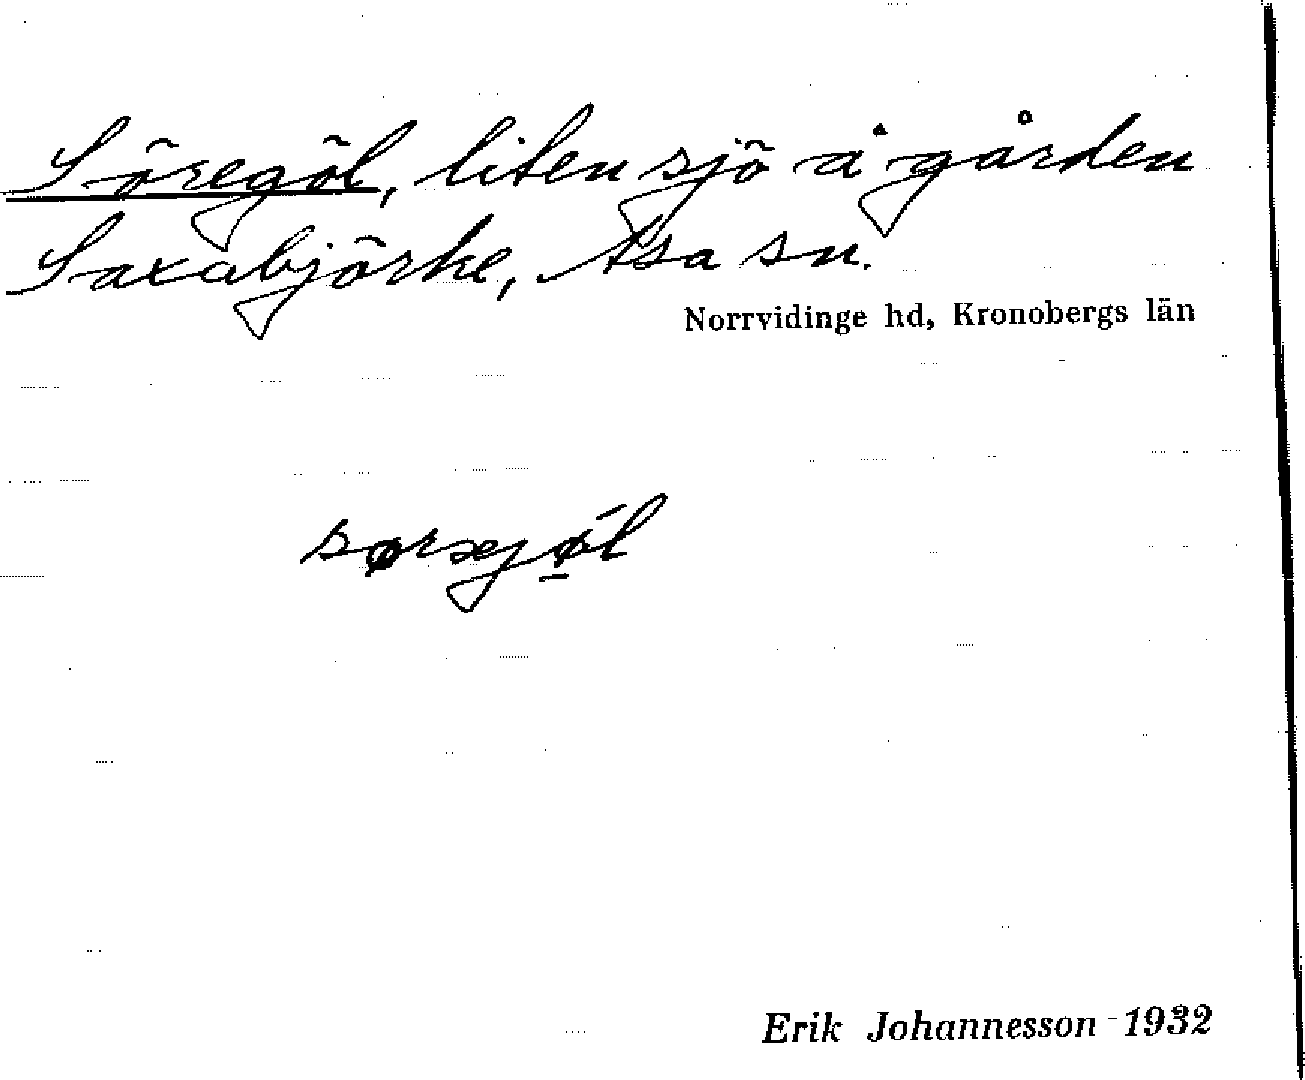 Söregöl, liten sjö å gården
Saxabjörke, Asa sn.
Norrvidinge hd, Kronobergs län
sørəjǿ̠l
Erik Johannesson 1932